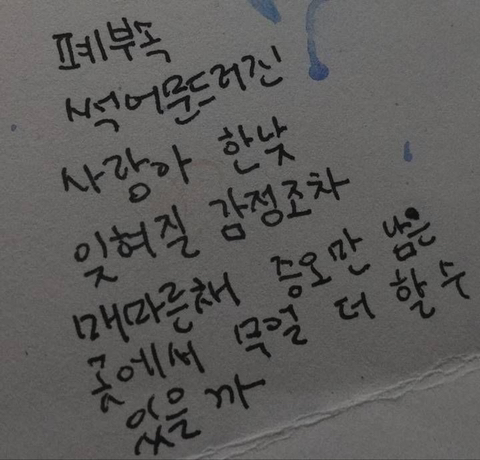 폐부속
썩어문드러진
사랑아 한낮
잊혀질 감정조차
매마른채 증오만 남은
곳에서 무얼 더 할 수
있을까